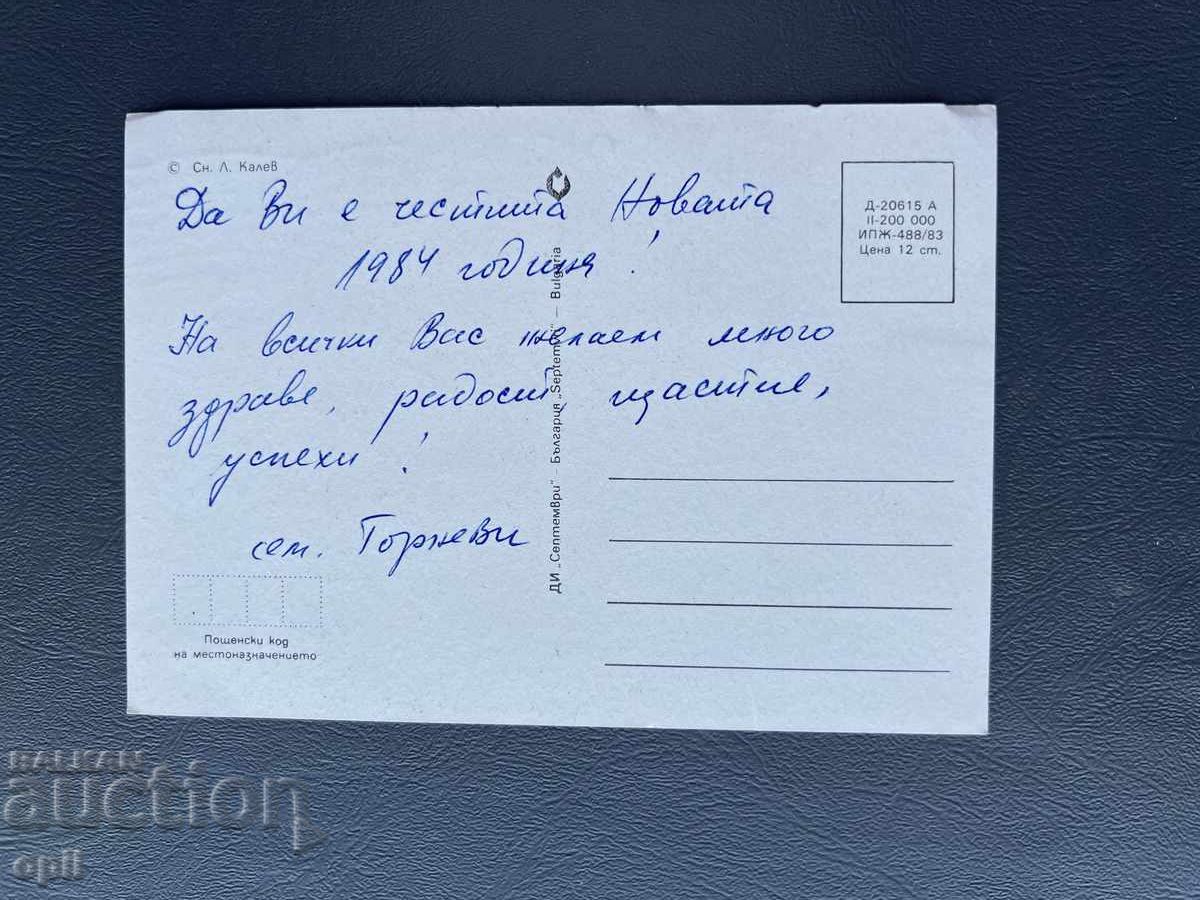 © Сн. Л. Калев
Да Ви е честита Новата
1984 година !
На всички Вас желаем много
здраве, радост, щастие,
успехи !
сем. Горневи
Пощенски код
на местоназначението
ДИ „Септември“ – България „Septemvri“ – Bulgaria
Д-20615 А
II-200 000
ИПЖ-488/83
Цена 12 ст.
BALKAN
auction
opil